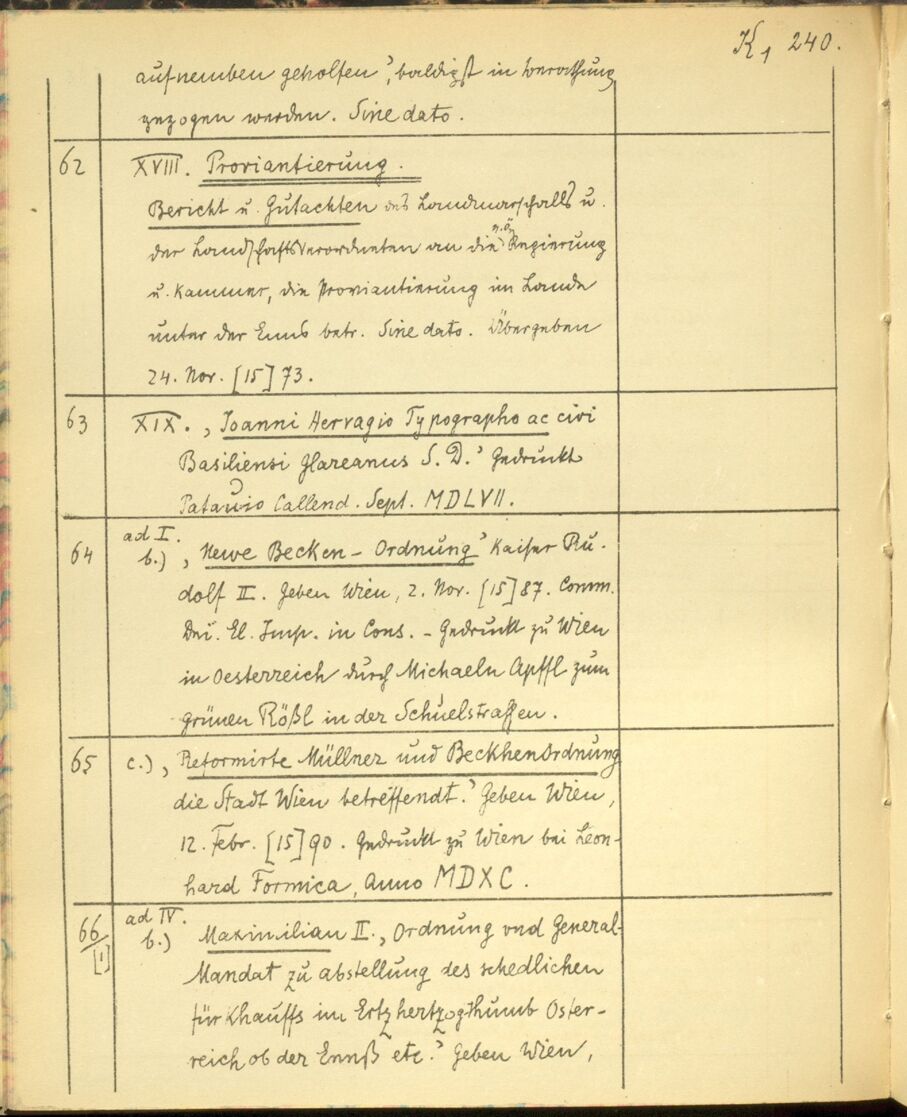 K1 240.
aufnemben geholfen', baldigst in berathung
gezogen werden. Sine dato.
62 XVIII. Proviantierung.
Bericht u. Gutachten des Landmarschalls u.
der Landschaftsverordneten an die n.ö. Regierung
u. Kammer, die Proviantierung im Lande
unter der Enns betr. Sine dato. Übergeben
24. Nov. [15]73.
63 XIX. ‚Joanni Hervagio Typographo ac civi
Basiliensi Glareanus S. D.' Gedruckt
Patauio Callend. Sept. MDLVII.
64 ad I.
b.) ‚Newe Becken-Ordnung' Kaiser Ru-
dolf II. Geben Wien, 2. Nov. [15]87. Comm.
Dni. El. Imp. in Cons. - Gedruckt zu Wien
in Oesterreich durch Michaeln Apffl zum
grünen Rößl in der Schuelstrassen.
65 c.) ‚Reformirte Müllner und BeckhenOrdnung
die Stadt Wien betreffendt.' Geben Wien,
12. Febr. [15]90. Gedruckt zu Wien bei Leon-
hard Formica, Anno MDXC.
66/[1] ad IV.
b.) Maximilian II. ‚Ordnung vnd General-
Mandat zu abstellung des schedlichen
fürkhauffs im Ertzhertzogthumb Oster-
reich ob der Ennß etc.' Geben Wien,